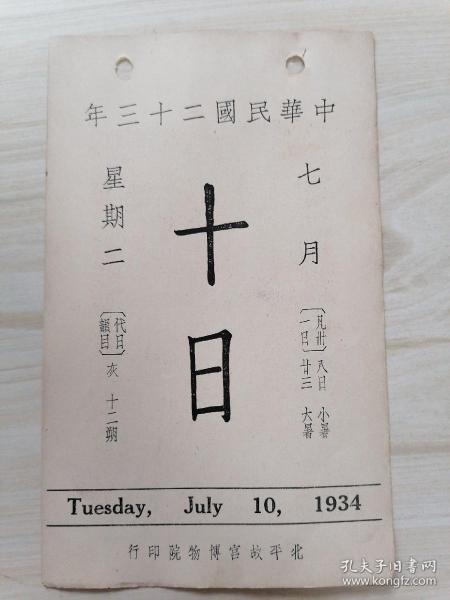 中華民國二十三年
七月
〔凡卅一日〕
八日 小暑
廿三 大暑
十日
星期二
〔代日韻目〕
灰 十二朔
Tuesday, July 10, 1934
北平故宮博物院印行
孔夫子旧书网